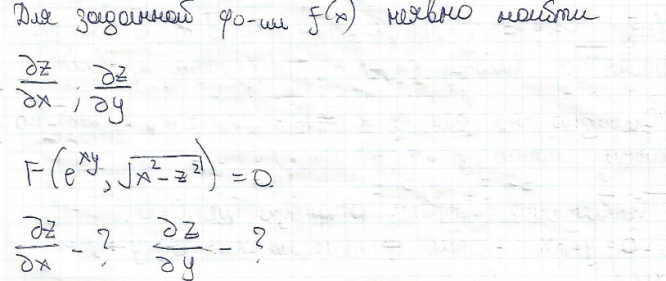 Для заданной фо-ии f(x) неявно найти
∂z/∂x ; ∂z/∂y
F(e^{xy}, √(x²-z²)) = 0
∂z/∂x - ? ∂z/∂y - ?